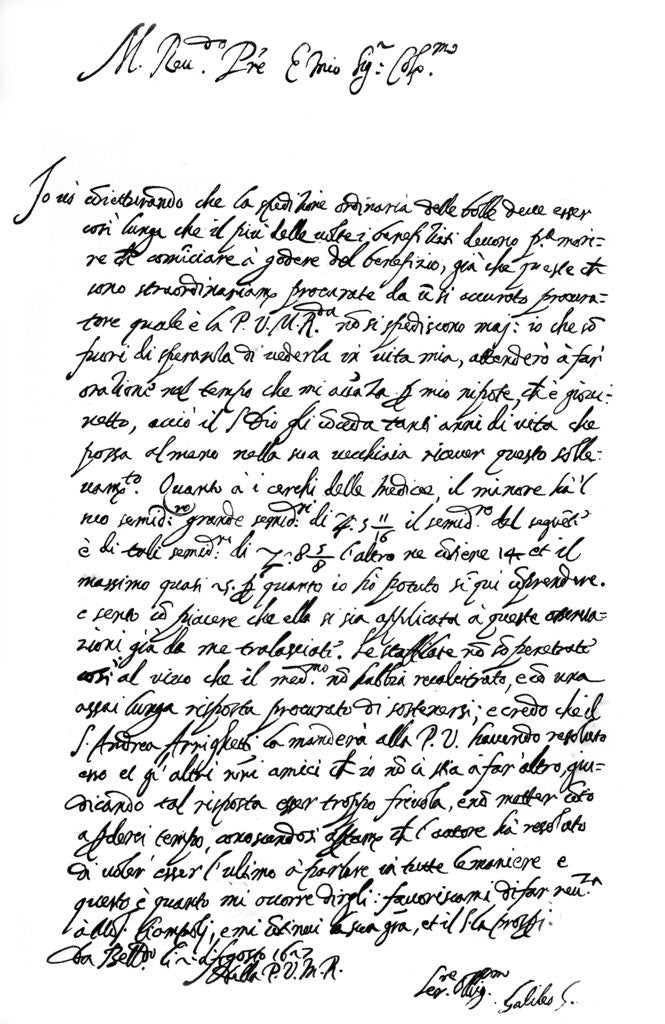 M. Reu.do Pre E mio Sig.r Col.mo
Io vò cōietturando che la spedizione ordinaria delle bolle deve esser
così lunga che il più delle volte i benefiziati devono p.a mori=
re ch comīciare à godere del benefizio, già che queste ch
sono straordinariam procurate da ū sì accurato procura=
tore quale è la P. V. M. R.da nō si spediscono maj: io che sō
fuori di speranza di vederla in vita mia, attenderò à far
orationi nel tempo che mi avāza p mio nipote, ch è giovi=
netto, acciò il S Dio gli cōceda tanti anni di vita che
possa almeno nella sua vecchiaia ricever questo solle=
vam.to. Quanto à i cerchi delle Medicee, il minore ha 'l
suo semid.ro grande semid.ri di 7. 5 11/16 il semid.ro del seguēte
è di tali semid.ri di 8 5/8 l'altro ne cōtiene 14 et il
massimo quasi 25. p quanto io hò potuto sin quì cōprendere.
e sento cō piacere che ella si sia applicata à queste osserva=
zioni già da me tralasciate. Le staffilate nō sō penetrate
così al vivo che il med.mo nō habbia recalcitrato, e cō una
assai lunga risposta procurato di sostenersi; e credo che il
S. Andrea Arrighetti la manderà alla P. V. havendo resoluto
esso et gl' altri nr̄i amici ch io nō ci stia à far altro, giu=
dicando tal risposta esser troppo frivola, e nō metter cōto
a pderci tempo, conoscendosi apertam ch l'autore ha resoluto
di voler esser l'ultimo à parlare in tutte le maniere e
questo è quanto mi occorre dirgli: favoriscami di far reu.za
à Mōs. Ciampoli, e mi cōtinui la sua gr̄a, et il S. la prosp.
Da Bell. li d'Agosto 1627
Della P. V. M. R.
Ser.re Obblig. Galileo G.